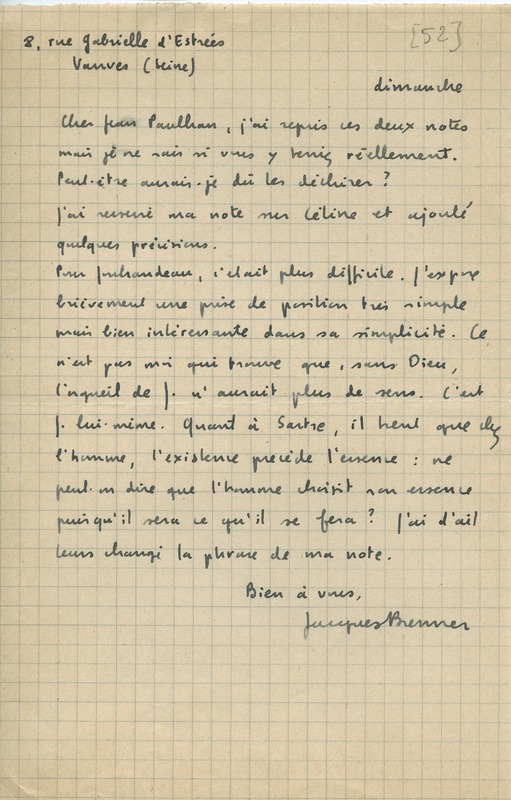 [52]
8, rue Gabrielle d'Estrées
Vanves (Seine)
dimanche
Cher Jean Paulhan, j'ai repris ces deux notes
mais je ne sais si vous y teniez réellement.
Peut-être aurais-je dû les déchirer ?
J'ai resserré ma note sur Céline et ajouté
quelques précisions.
Pour Jouhandeau, c'était plus difficile. J'expose
brièvement une prise de position très simple
mais bien intéressante dans sa simplicité. Ce
n'est pas moi qui trouve que, sans Dieu,
l'orgueil de J. n'aurait plus de sens. C'est
J. lui-même. Quant à Sartre, il tient que chez
l'homme, l'existence précède l'essence : ne
peut-on dire que l'homme choisit son essence
puisqu'il sera ce qu'il se fera ? J'ai d'ail
leurs changé la phrase de ma note.
Bien à vous,
Jacques Brenner